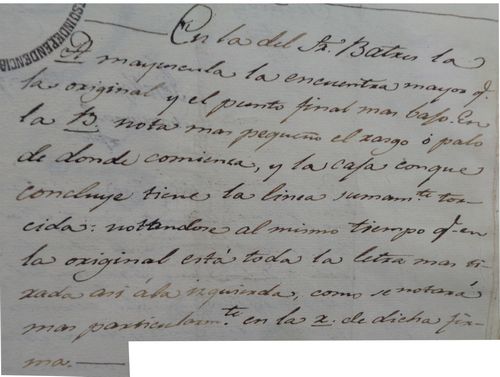 SU INDEPENDENCIA
En la del Sr. Batres la
A mayuscula la encuentra mayor q.
la original y el punto final mas bajo. En
la B nota mas pequeño el rasgo ó palo
de donde comienza, y la caja conque
concluye tiene la linea sumam.te tor-
cida: nottandose al mismo tiempo q. en
la original está toda la letra mas ti-
rada asi á la izquierda, como se notará
mas particularm.te en la x. de dicha fir-
ma.